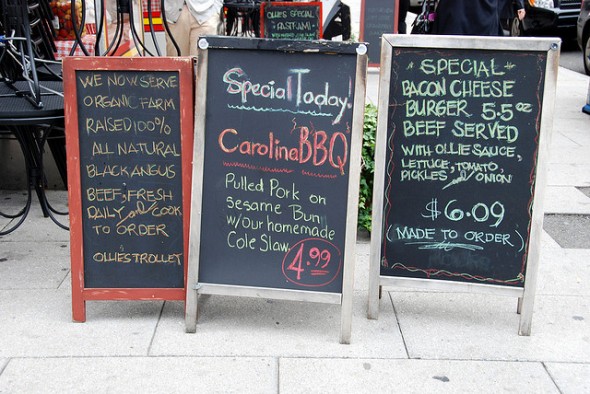 OLLIES SPECIAL
WE NOW SERVE
ORGANIC FARM
RAISED 100%
ALL NATURAL
BLACK ANGUS
BEEF, FRESH
DAILY and COOK
TO ORDER
OLLIES TROLLEY
Special Today!
Carolina BBQ
Pulled Pork on
Sesame Bun
w/our homemade
Cole Slaw
4.99
SPECIAL
BACON CHEESE
BURGER 5.5oz
BEEF SERVED
WITH OLLIE SAUCE,
LETTUCE, TOMATO,
PICKLES and ONION
$6.09
(MADE TO ORDER)